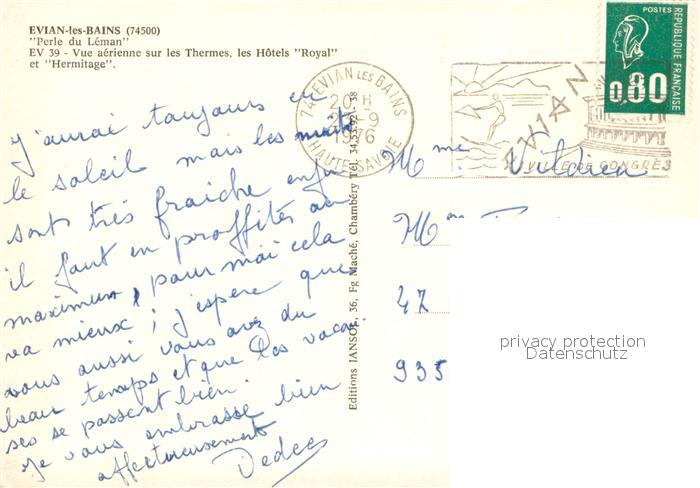 EVIAN-les-BAINS (74500)
"Perle du Léman"
EV 39 - Vue aérienne sur les Thermes, les Hôtels "Royal"
et "Hermitage".
POSTES
REPUBLIQUE FRANÇAISE
0,80
74 EVIAN LES BAINS
20 H
9
1976
HAUTE-SAVOIE
EVIAN
VILLE DE CONGRÈS
j'aurai toujours eu
le soleil mais les nuits
sont très fraiche enfin
il faut en proffiter au
maximum, pour moi cela
va mieux; j'espère que
vous aussi vous avez du
beau temps et que les vacan
ces se passent bien.
Je vous embrasse bien
affectueusement
Dedee
Editions JANSOL, 36, Fg Maché, Chambéry Tél. 34.53.92 - 38
Mme
Mme
47
935
privacy protection
Datenschutz